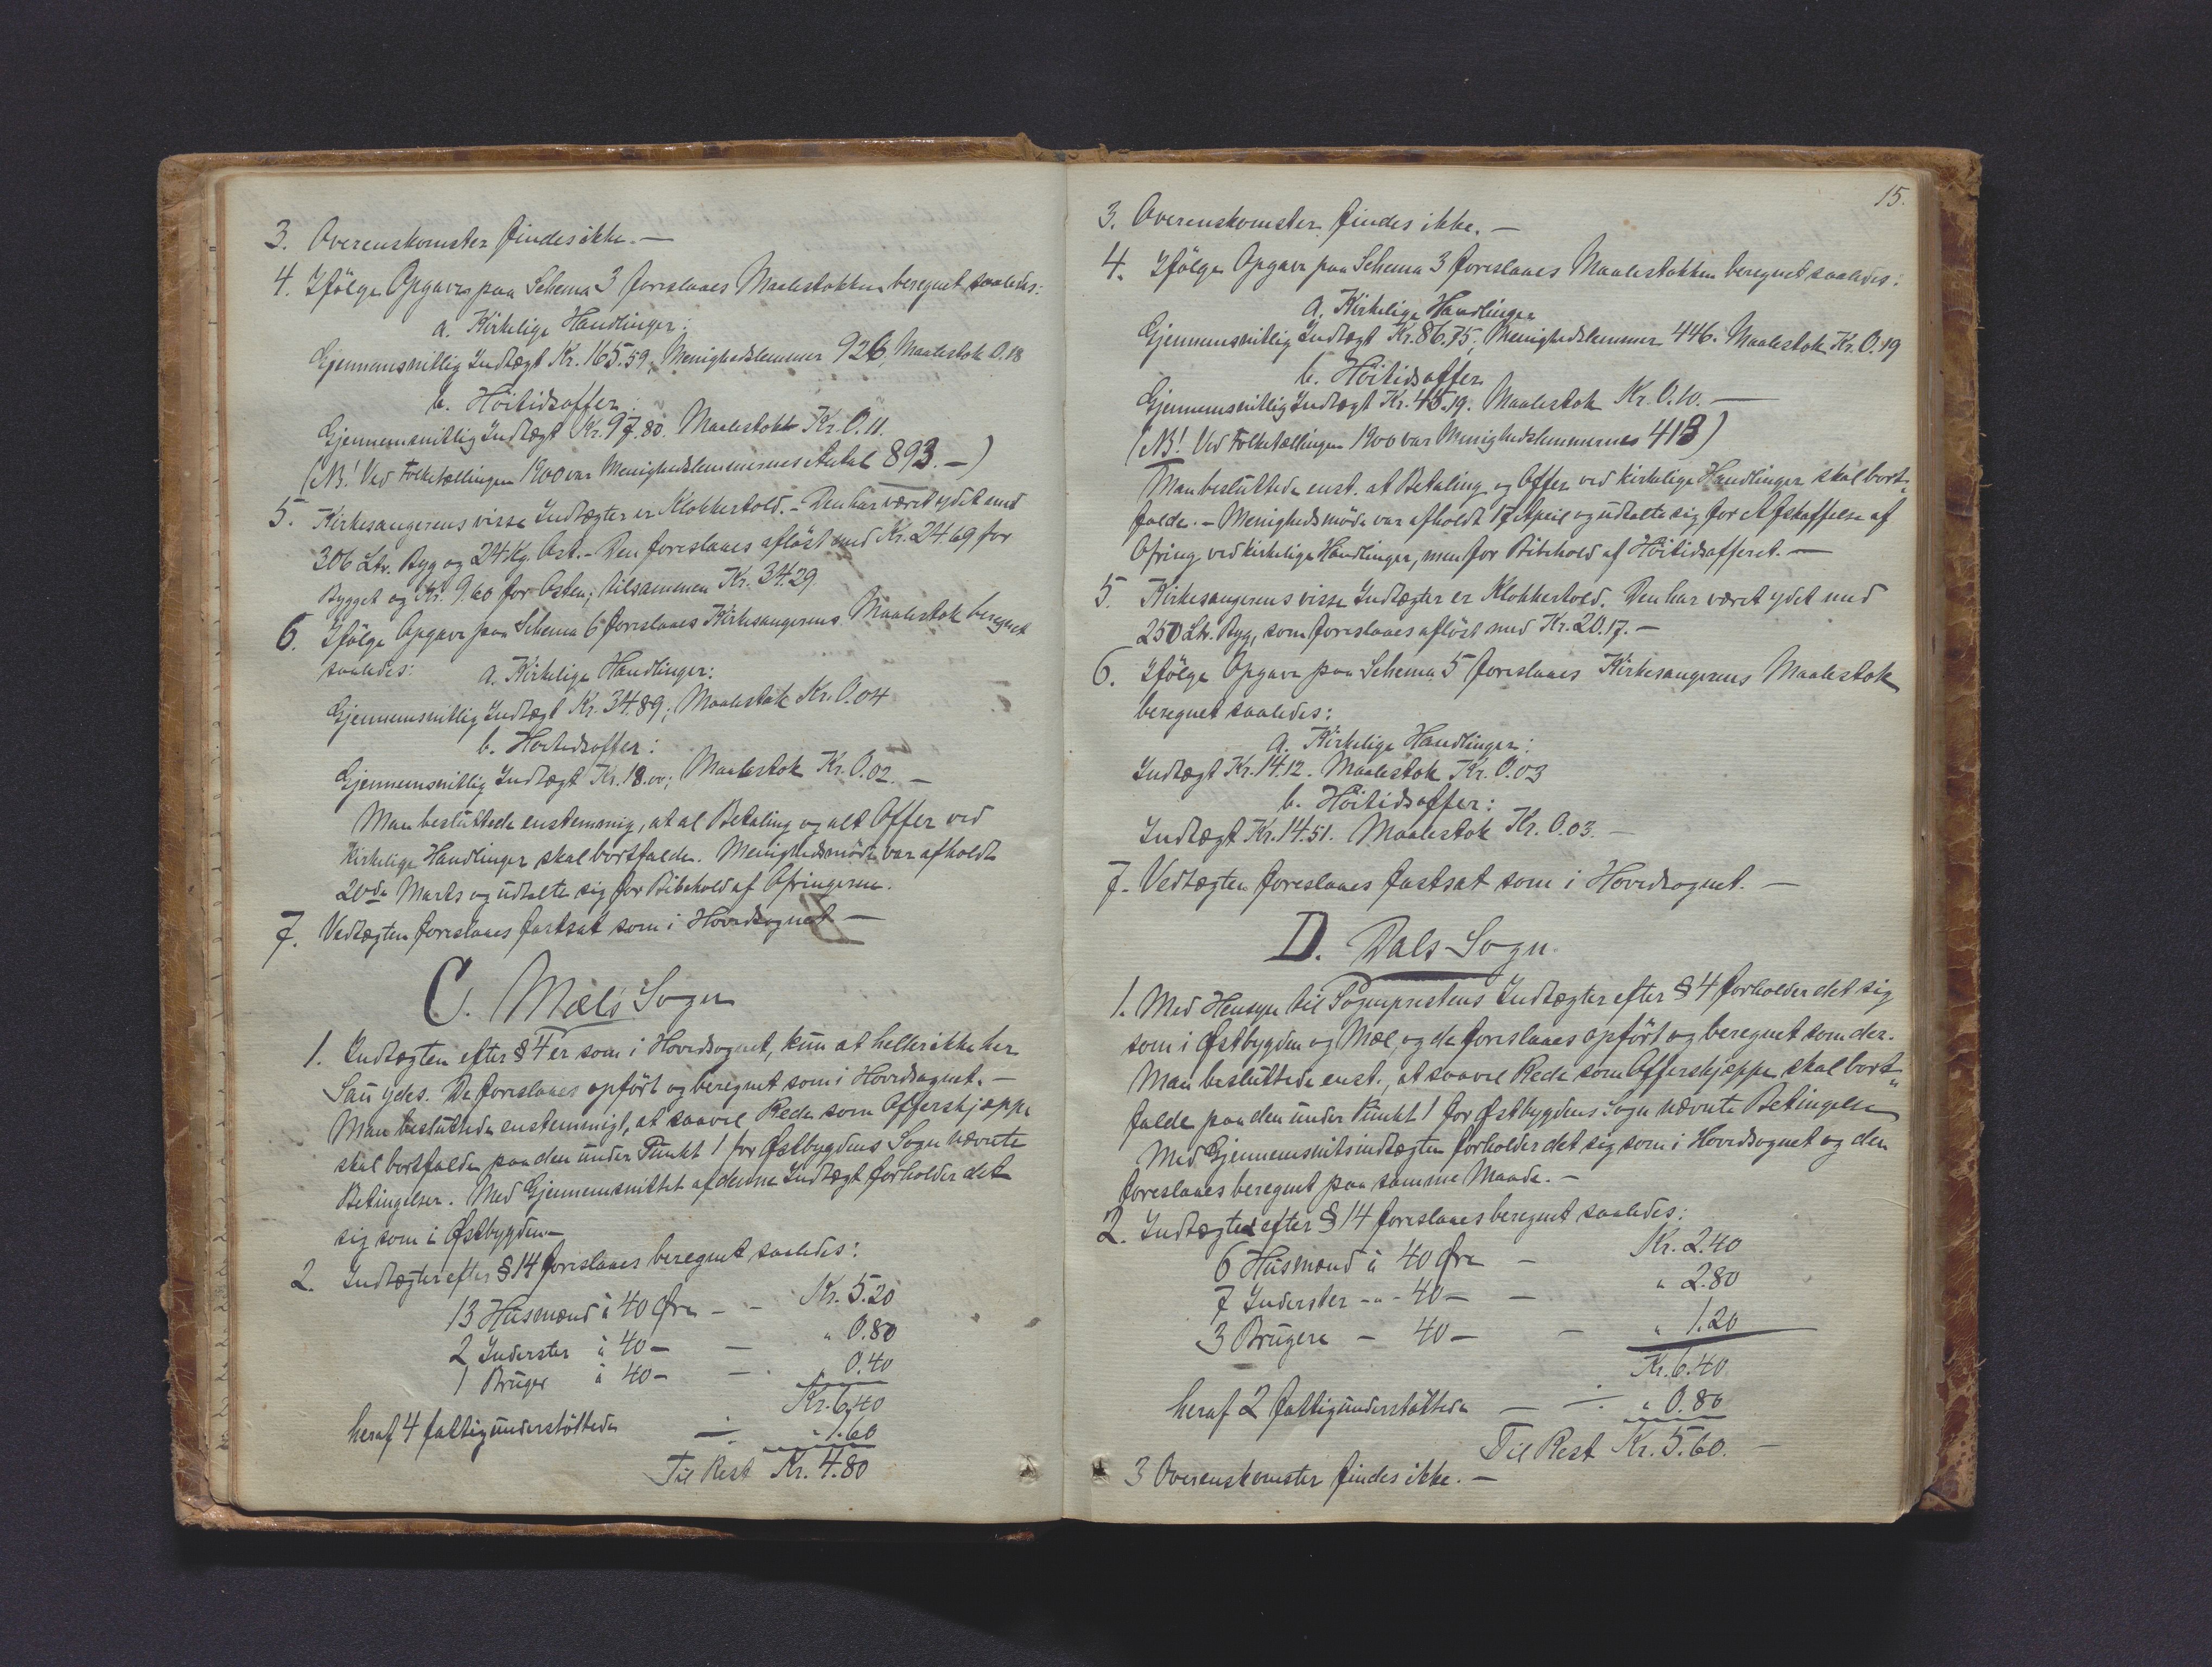 3. Overenskomster findes ikke. —
4. Ifölge Opgave paa Schema 3 foreslaaes Maalestokken beregnet saaledes:
a. Kirkelige Handlinger:
Gjennemsnitlig Indtægt Kr. 165.59, Menighedslemmer 926, Maalestok 0.18
b. Höitidsoffer:
Gjennemsnitlig Indtægt Kr. 97.80. Maalestokk Kr. 0.11.
(NB! Ved Folketællingen 1900 var Menighedslemmernes Antal 893. —)
5. Kirkesangerens visse Indtægter er Klokkertold. — Den har været ydet med
306 Ltr. Byg og 24 Kg. Ost. — Den foreslaaes aflöst med Kr. 24.69 for
Bygget og Kr. 9.60 for Osten; tilsammen Kr. 34.29
6. Ifölge Opgave paa Schema 6 foreslaaes Kirkesangerens Maalestok beregnet
saaledes: a. Kirkelige Handlinger:
Gjennemsnitlig Indtægt Kr. 34.89; Maalestok Kr. 0.04
b. Hoitidsoffer:
Gjennemsnitlig Indtægt Kr. 18.00; Maalestok Kr. 0.02. —
Man besluttede enstemmig, at al Betaling og alt Offer ved
Kirkelige Handlinger skal bortfalde. Menighedsmöde var afholdt
20de Marts og udtalte sig for Bibehold af Ofringerne.
7. Vedtægten foreslaaes fastsat som i Hovedsognet —
C. Mæls Sogn
1. Indtægten efter § 4 er som i Hovedsognet, kun at heller ikke her
Sau ydes. De foreslaaes opfört og beregnet som i Hovedsognet. —
Man besluttede enstemmigt, at saavel Rede som Offerskjæppe
skal bortfalde paa den under Punkt 1 for Østbygdens Sogn nævnte
Betingelser. Med Gjennemsnittet af denne Indtægt forholder det
sig som i Østbygden —
2. Indtægter efter § 14 foreslaaes beregnet saaledes:
13 Husmænd à 40 Øre — — Kr. 5.20
2 Inderster à 40 — — " 0.80
1 Bruger à 40 — — " 0.40
Kr. 6.40
heraf 4 fattigunderstöttede ÷ " 1.60
Til Rest Kr. 4.80
15.
3. Overenskomster findes ikke. —
4. Ifölge Opgave paa Schema 3 foreslaaes Maalestokken beregnet saaledes:
a. Kirkelige Handlinger
Gjennemsnitlig Indtægt Kr. 86.75; Menighedslemmer 446. Maalestok Kr. 0.19
b. Höitidsoffer
Gjennemsnitlig Indtægt Kr. 45.19. Maalestok Kr. 0.10. —
(NB! Ved Folketællingen 1900 var Menighedslemmernes 413)
Man besluttede enst. at Betaling og Offer ved kirkelige Handlinger skal bort-
falde. — Menighedsmöde var afholdt 17 April og udtalte sig for Afskaffelse af
Ofring ved kirkelige Handlinger, men for Bibehold af Höitidsofferet. —
5. Kirkesangerens visse Indtægter er Klokkertold. Den har været ydet med
250 Ltr. Byg, som foreslaaes aflöst med Kr. 20.17. —
6. Ifölge Opgave paa Schema 5 foreslaaes Kirkesangerens Maalestok
beregnet saaledes:
a. Kirkelige Handlinger:
Indtægt Kr. 14.12. Maalestok Kr. 0.03
b. Höitidsoffer:
Indtægt Kr. 14.51. Maalestok Kr. 0.03. —
7. Vedtægten foreslaaes fastsat som i Hovedsognet. —
D. Dals Sogn
1. Med Hensyn til Sogneprestens Indtægter efter § 4 forholder det sig
som i Østbygden og Mæl, og de foreslaaes opfört og beregnet som der.
Man besluttede enst., at saavel Rede som Offerskjæppe skal bort-
falde paa den under Punkt 1 for Østbygdens Sogn nævnte Betingelse
Med Gjennemsnitsindtægten forholder det sig som i Hovedsognet og den
foreslaaes beregnet paa samme Maade. —
2. Indtægter efter § 14 foreslaaes beregnet saaledes:
6 Husmænd à 40 Øre — Kr. 2.40
7 Inderster - " - 40 — — " 2.80
3 Brugere — 40 — — " 1.20
Kr. 6.40
heraf 2 fattigunderstöttede — ÷ " 0.80
Til Rest Kr. 5.60. —
3 Overenskomster findes ikke. —